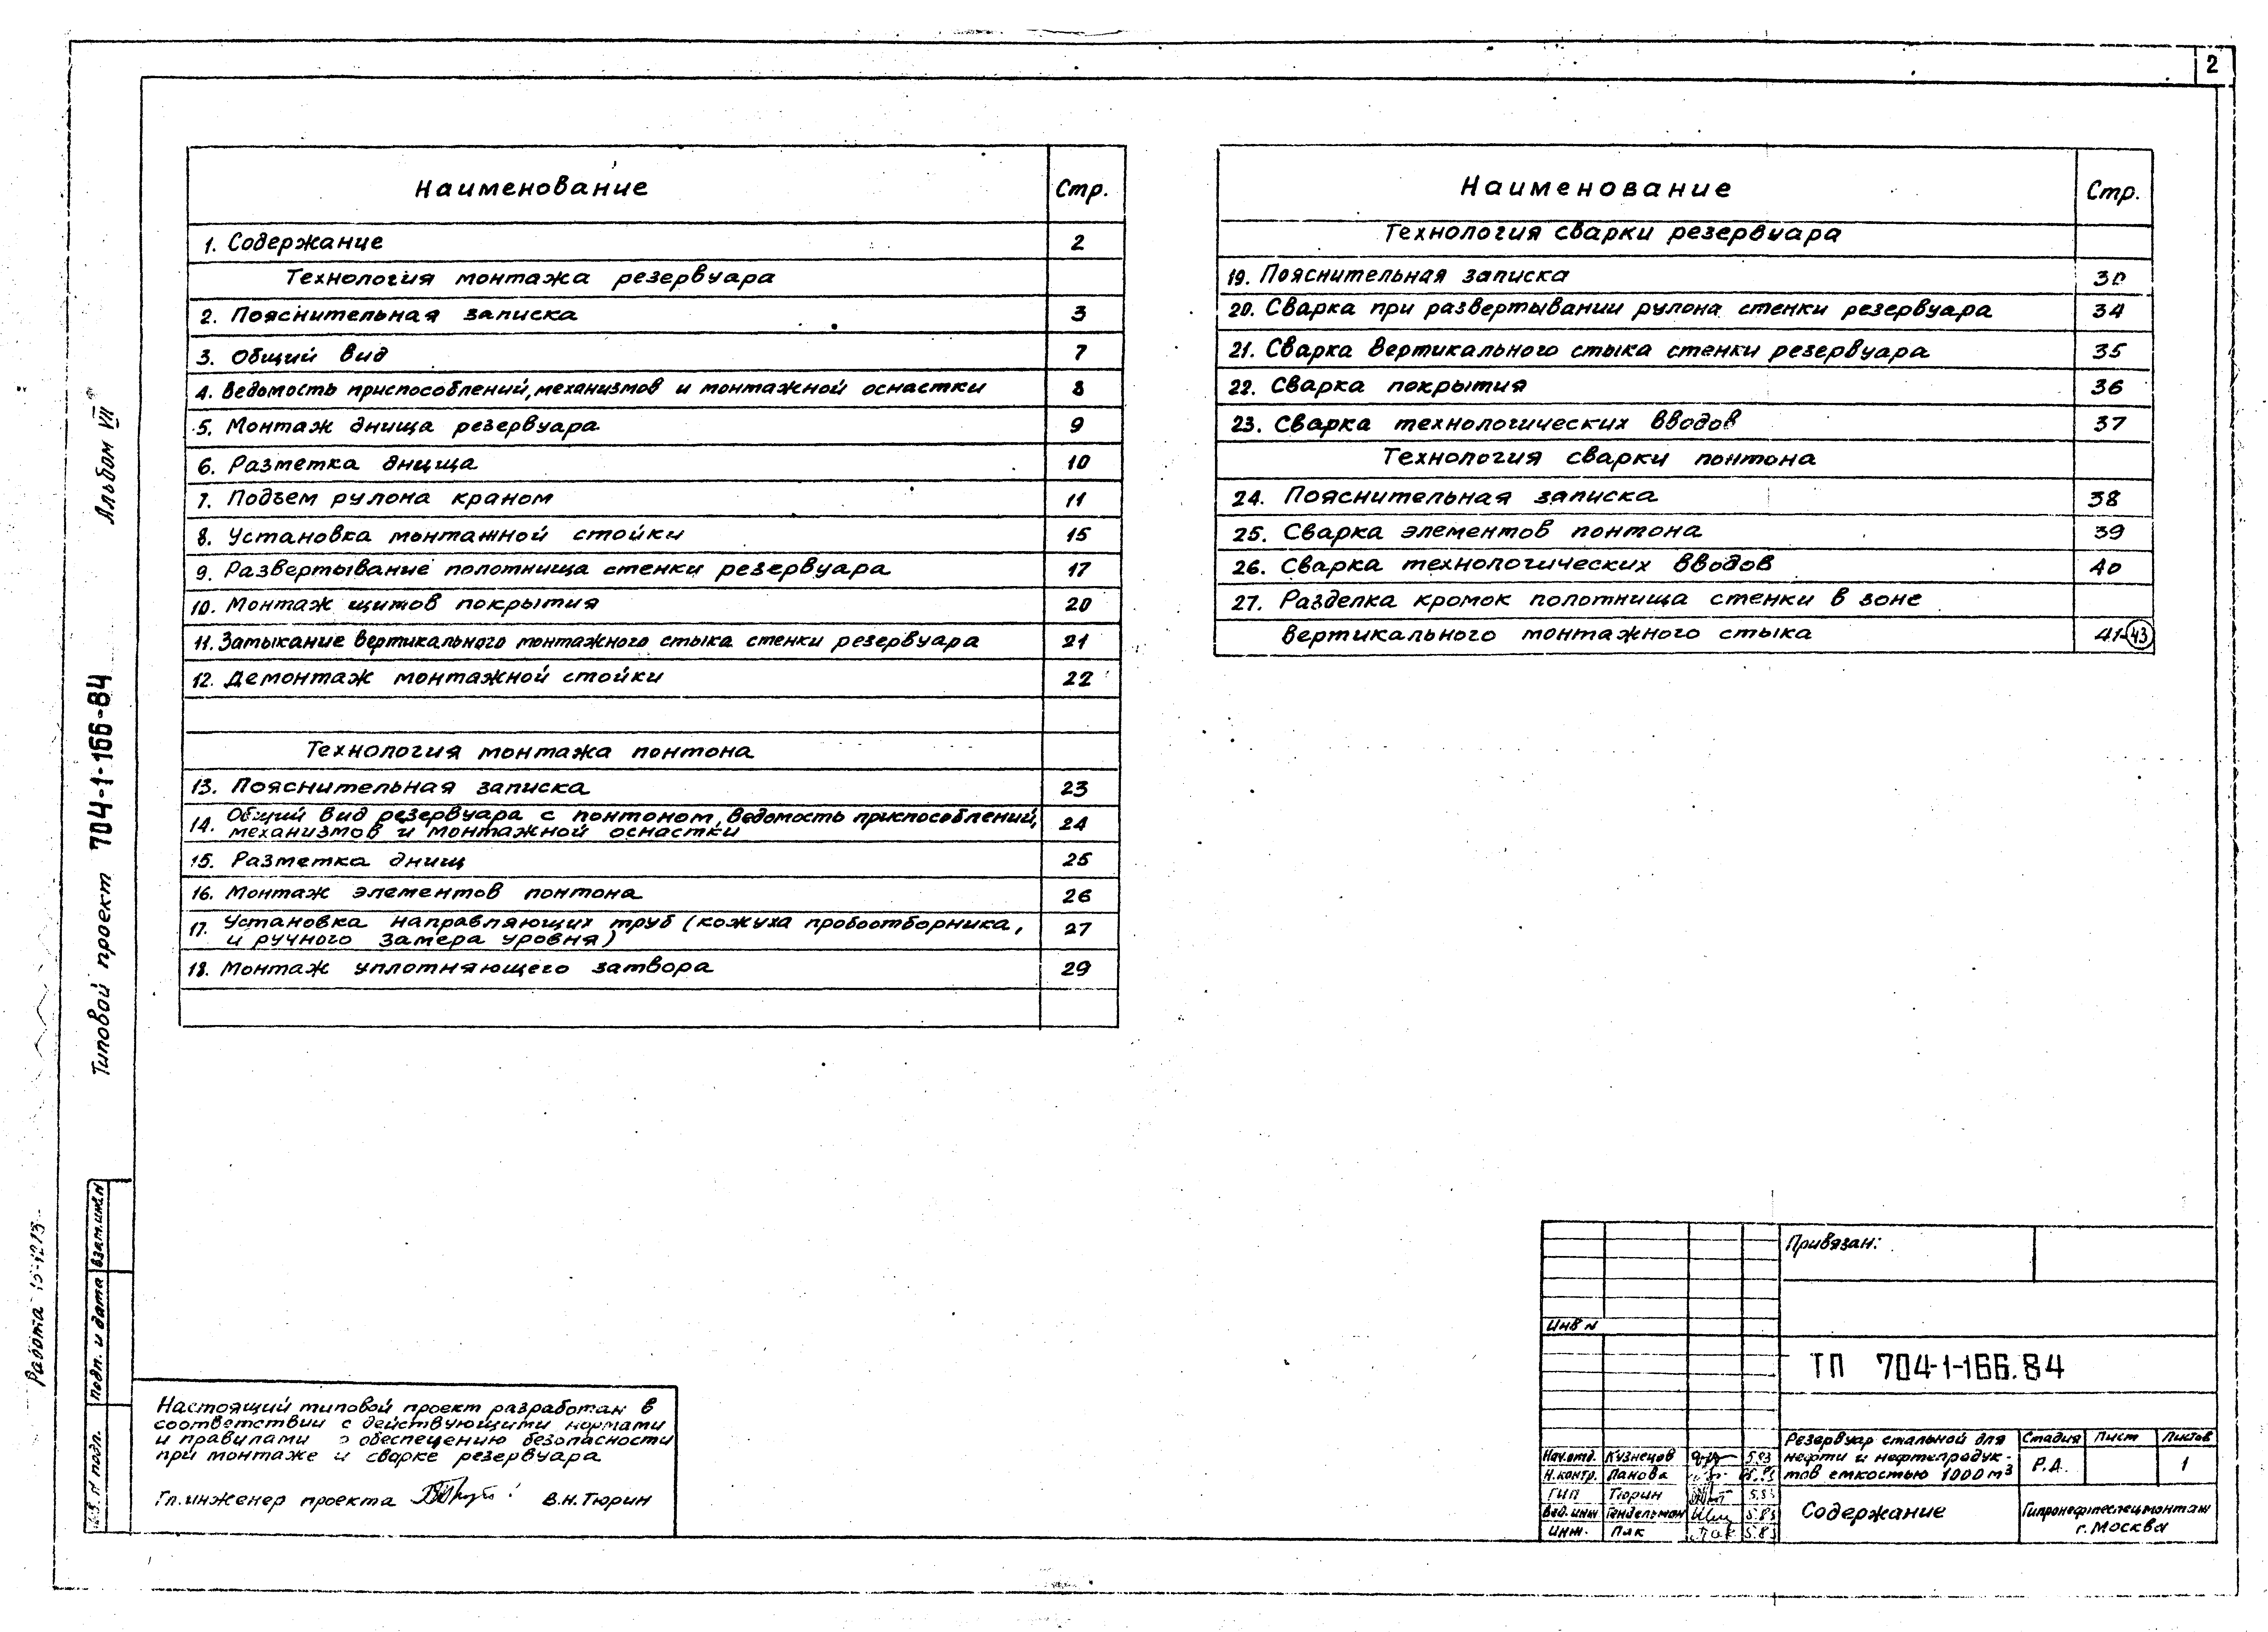 2
Наименование Стр.
1. Содержание 2
Технология монтажа резервуара
2. Пояснительная записка 3
3. Общий вид 7
4. Ведомость приспособлений, механизмов и монтажной оснастки 8
5. Монтаж днища резервуара 9
6. Разметка днища 10
7. Подъем рулона краном 11
8. Установка монтажной стойки 15
9. Развертывание полотнища стенки резервуара 17
10. Монтаж щитов покрытия 20
11. Замыкание вертикального монтажного стыка стенки резервуара 21
12. Демонтаж монтажной стойки 22
Технология монтажа понтона
13. Пояснительная записка 23
14. Общий вид резервуара с понтоном, ведомость приспособлений,
механизмов и монтажной оснастки 24
15. Разметка днищ 25
16. Монтаж элементов понтона 26
17. Установка направляющих труб (кожуха пробоотборника,
и ручного замера уровня) 27
18. Монтаж уплотняющего затвора 29
Наименование Стр.
Технология сварки резервуара
19. Пояснительная записка 30
20. Сварка при развертывании рулона стенки резервуара 34
21. Сварка вертикального стыка стенки резервуара 35
22. Сварка покрытия 36
23. Сварка технологических вводов 37
Технология сварки понтона
24. Пояснительная записка 38
25. Сварка элементов понтона 39
26. Сварка технологических вводов 40
27. Разделка кромок полотнища стенки в зоне
вертикального монтажного стыка 41-43
Альбом VIII
Типовой проект 704-1-166-84
Взам.инв.N
Подп. и дата
N подл.
Работа
Настоящий типовой проект разработан в
соответствии с действующими нормами
и правилами обеспечению безопасности
при монтаже и сварке резервуара
Гл.инженер проекта В.Н.Тюрин
Привязан:
Инв N
ТП 704-1-166.84
Нач.отд. Кузнецов 5.83
Н.контр. Панова
ГИП Тюрин
Вед.инж Гендельман 5.83
Инж. Пак 5.83
Резервуар стальной для
нефти и нефтепродук-
тов емкостью 1000 м³
Стадия Лист Листов
Р.Д. 1
Содержание
Гипронефтеспецмонтаж
г.Москва